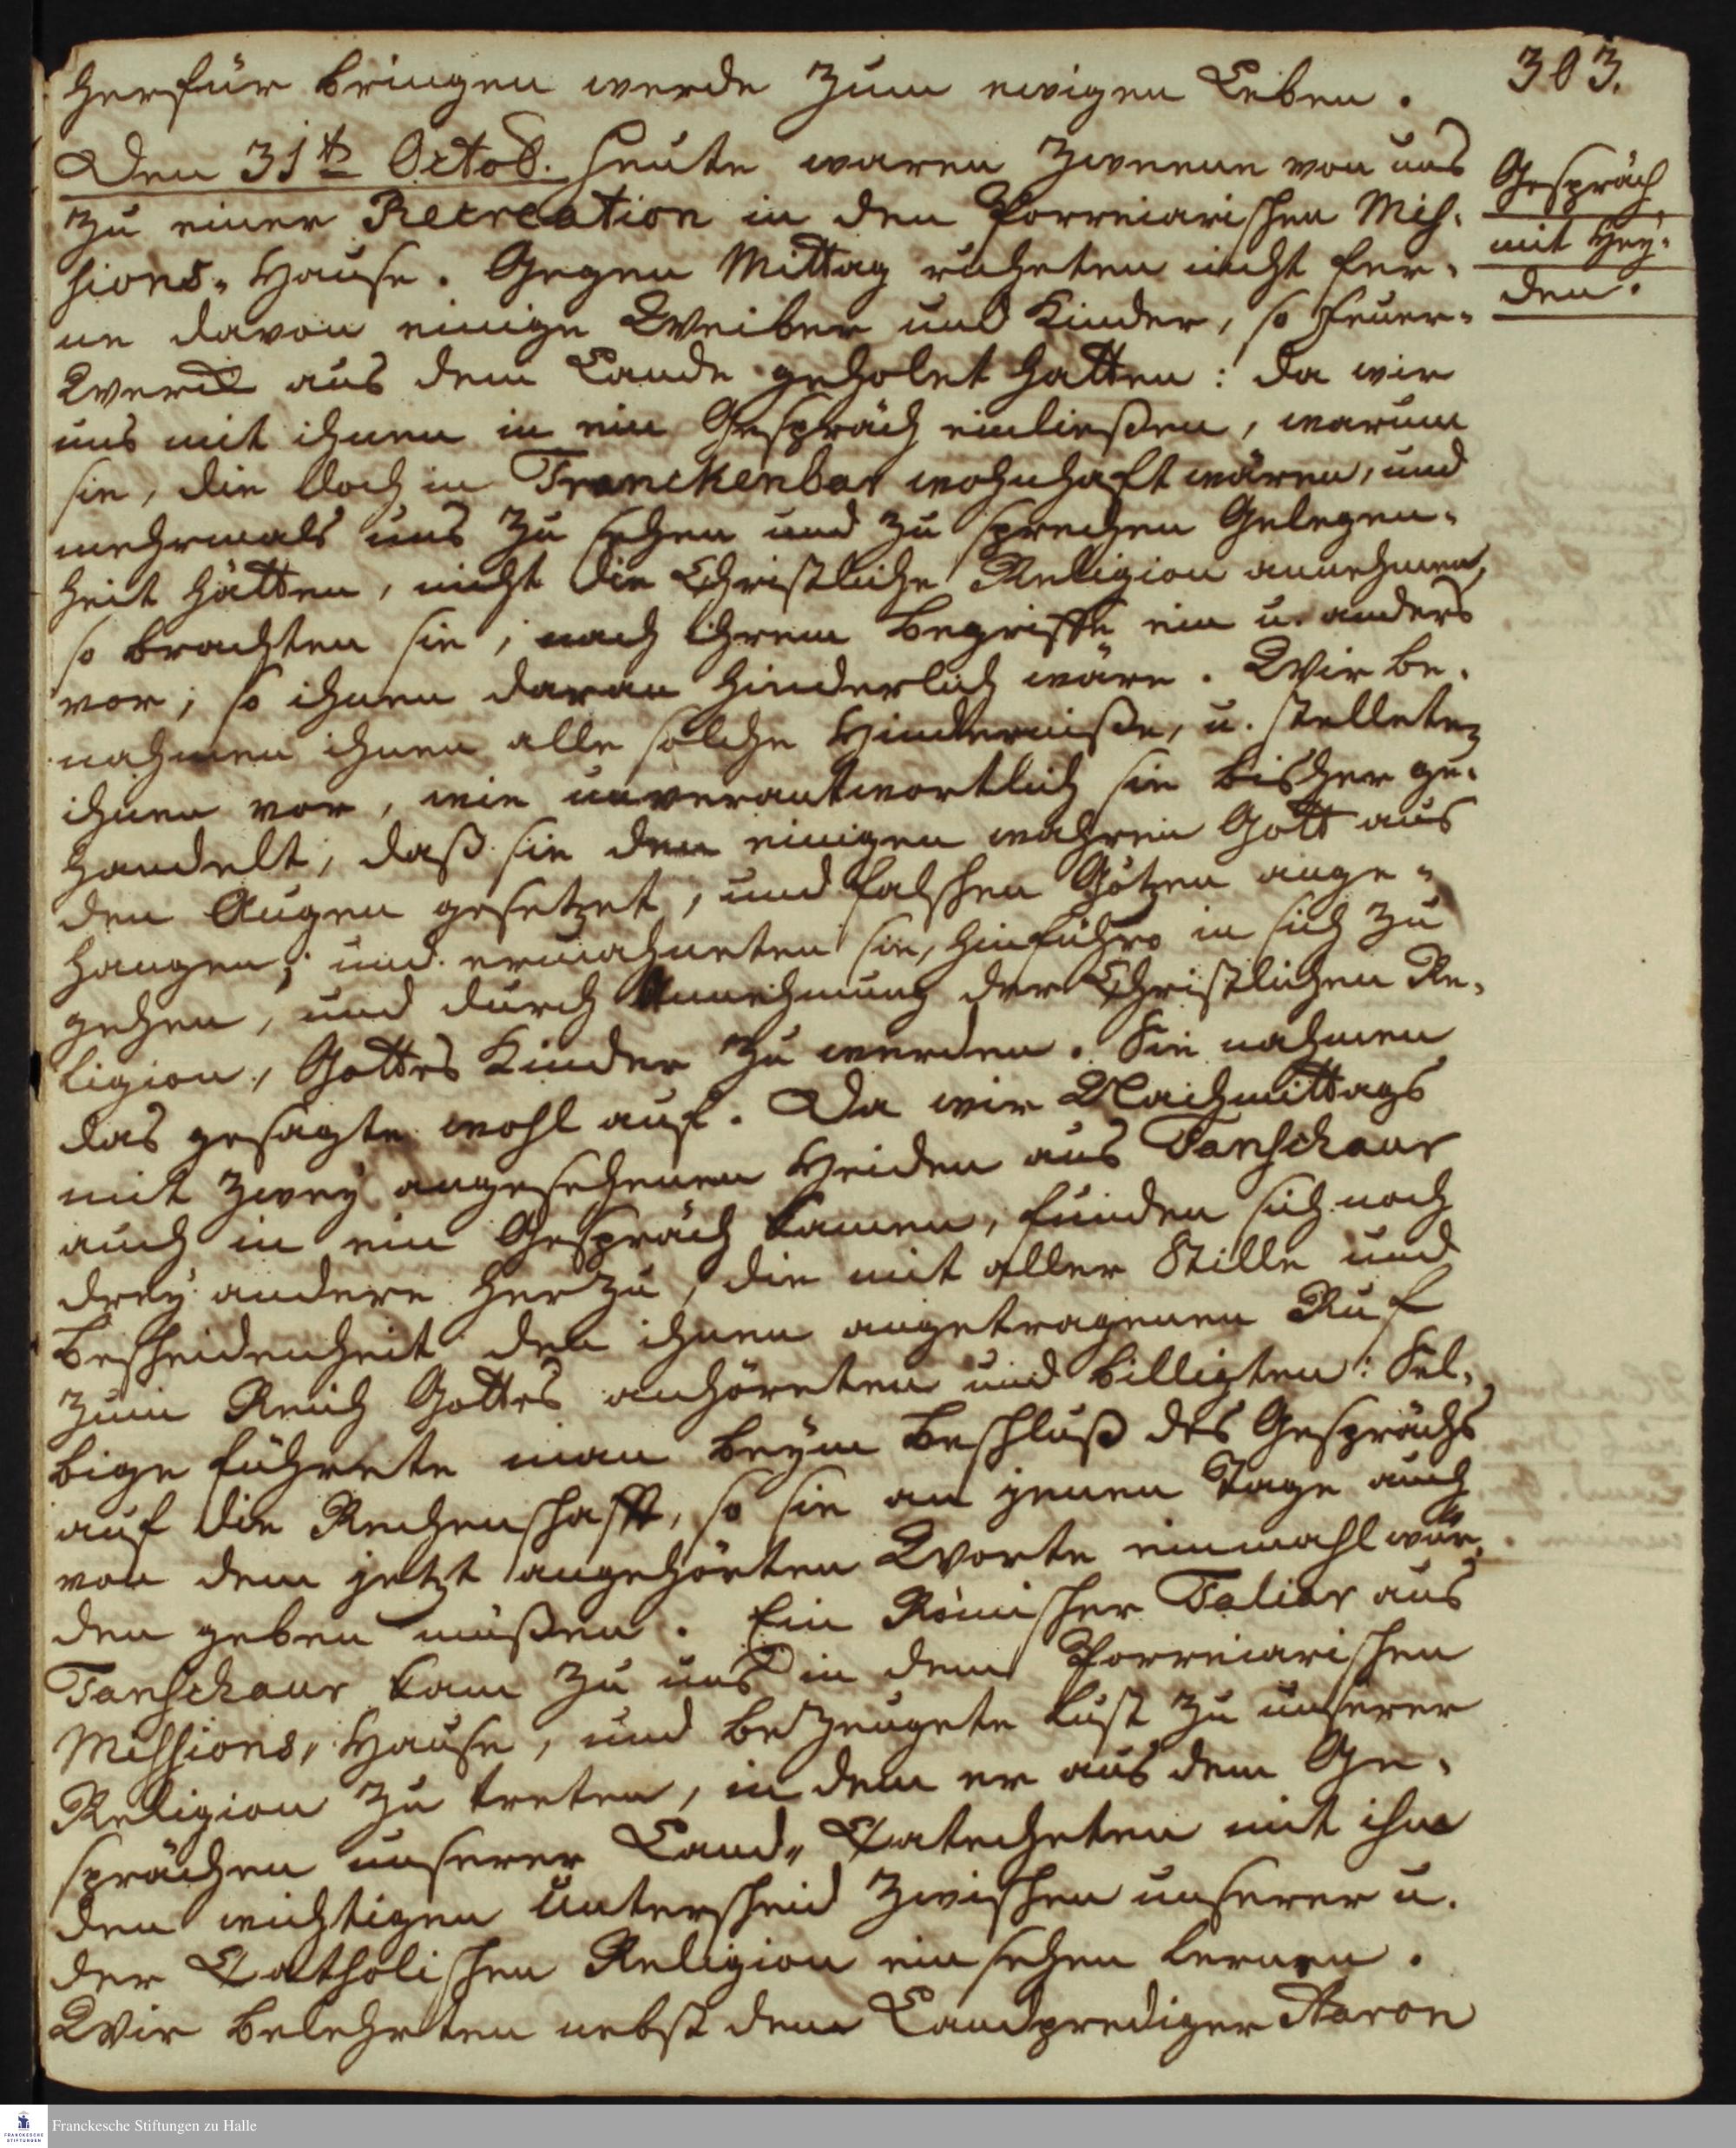 303.
herfür bringen werde zum ewigen Leben.
Den 31te Octob. Heute waren zweene von uns
zu einer Recreation in den Porreiarischen Mis-
sions-Hause. Gegen Mittag ruheten nicht fer-
ne davon einige Weiber und Kinder, so Feuer-
Werck aus dem Lande geholet hatten: da wir
uns mit ihnen in ein Gespräch einließen, warum
sie, die doch in Tranckenbar wohnhafft wären, und
mehrmals uns zu sehen und zu sprechen Gelegen-
heit hätten, nicht die Christliche Religion annehmen,
so brachten sie, nach ihrem Begriffe ein u. anders
vor, so ihnen daran hinderlich wäre. Wir be-
nahmen ihnen alle solche Hinderniße, u. stelleten
ihnen vor, wie unverantwortlich sie bisher ge-
handelt, daß sie den einigen wahren Gott aus
den Augen gesetzet, und falschen Götzen ange-
hangen; und ermahneten sie, hinführo in sich zu
gehen, und durch Annehmung der Christlichen Re-
ligion, Gottes Kinder zu werden. Sie nahmen
das gesagte wohl auf. Da wir Nachmittags
mit zwey angesehenen Heiden aus Tanschaur
auch in ein Gespräch kamen, funden sich noch
drey andere herzu, die mit aller Stille und
Bescheidenheit den ihnen angetragenen Ruf
zum Reich Gottes anhöreten und billigten: Sel-
bige führete man beym Beschluß des Gesprächs
auf die Rechenschafft, so sie an jenen Tage auch
von dem jetzt angehörten Worte einmahl wür-
den geben müßen. Ein Römischer Taliar aus
Tanschaur kam zu uns in dem Porreiarischen
Missions-Hause, und bezeugete Lust zu unserer
Religion zu treten, in dem er aus dem Ge-
sprächen unserer Land-Catecheten mit ihm
den wichtigen Unterscheid zwischen unserer u.
der Catholischen Religion einsehen lernen.
Wir belehrten nebst dem Landprediger Aaron
Gespräch
mit Hey-
den.
Franckesche Stiftungen zu Halle
FRANCKESCHE
STIFTUNGEN